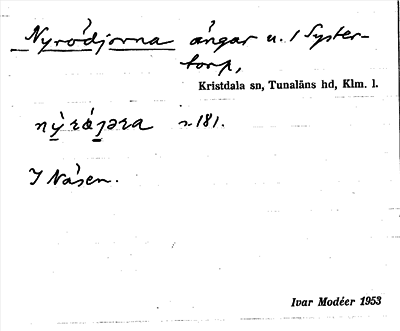 Nyrödjorna ängar u. 1 Syster-
torp,
Kristdala sn, Tunaläns hd, Klm. l.
s. 181.
I Nåsen.
Ivar Modéer 1953